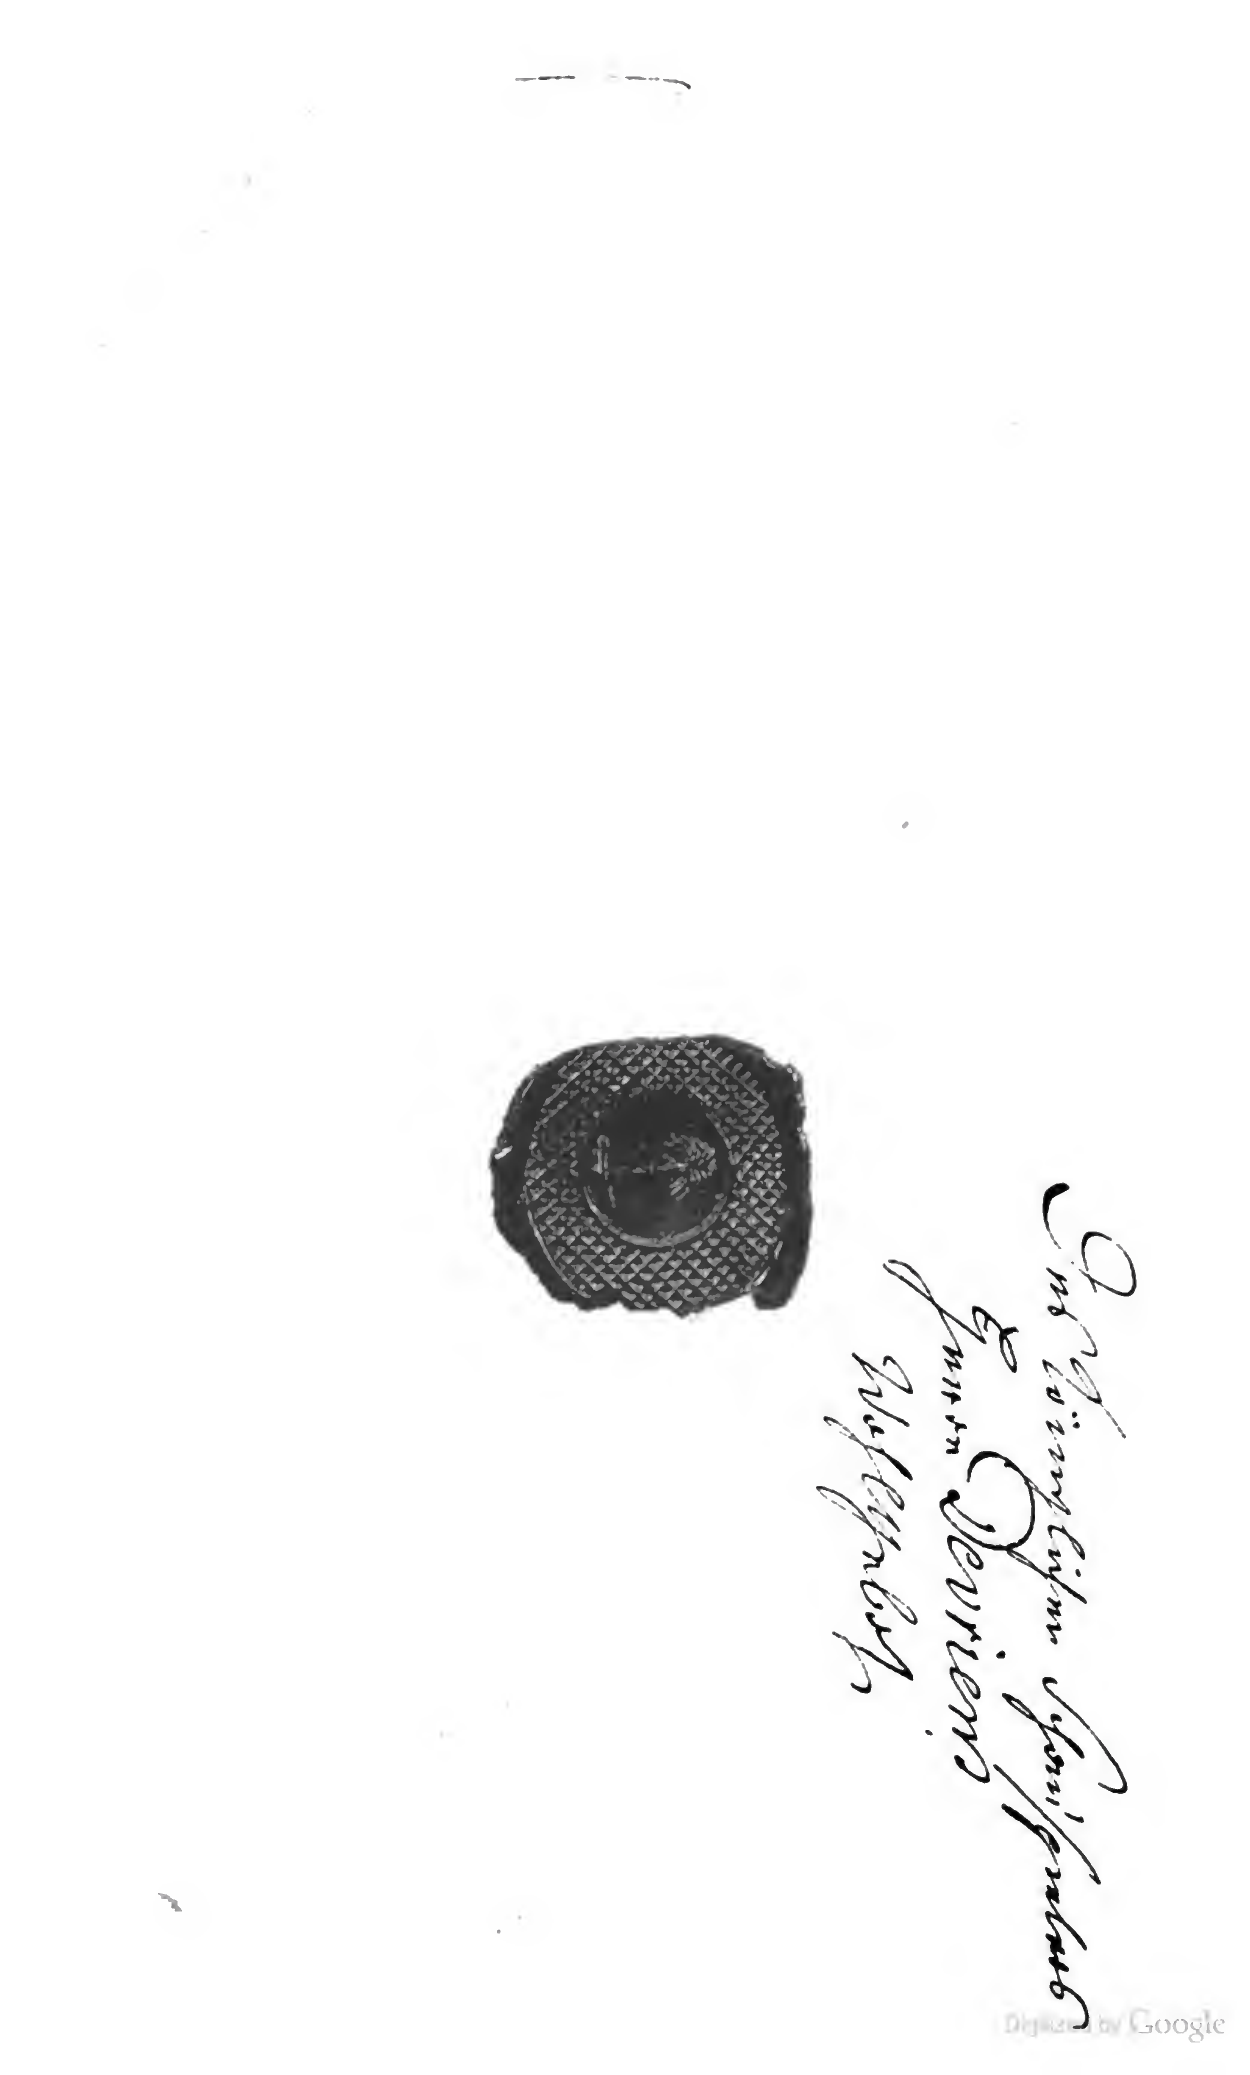 Des Königlichen Schauspielers
Herrn Devrient
Digitized by Google